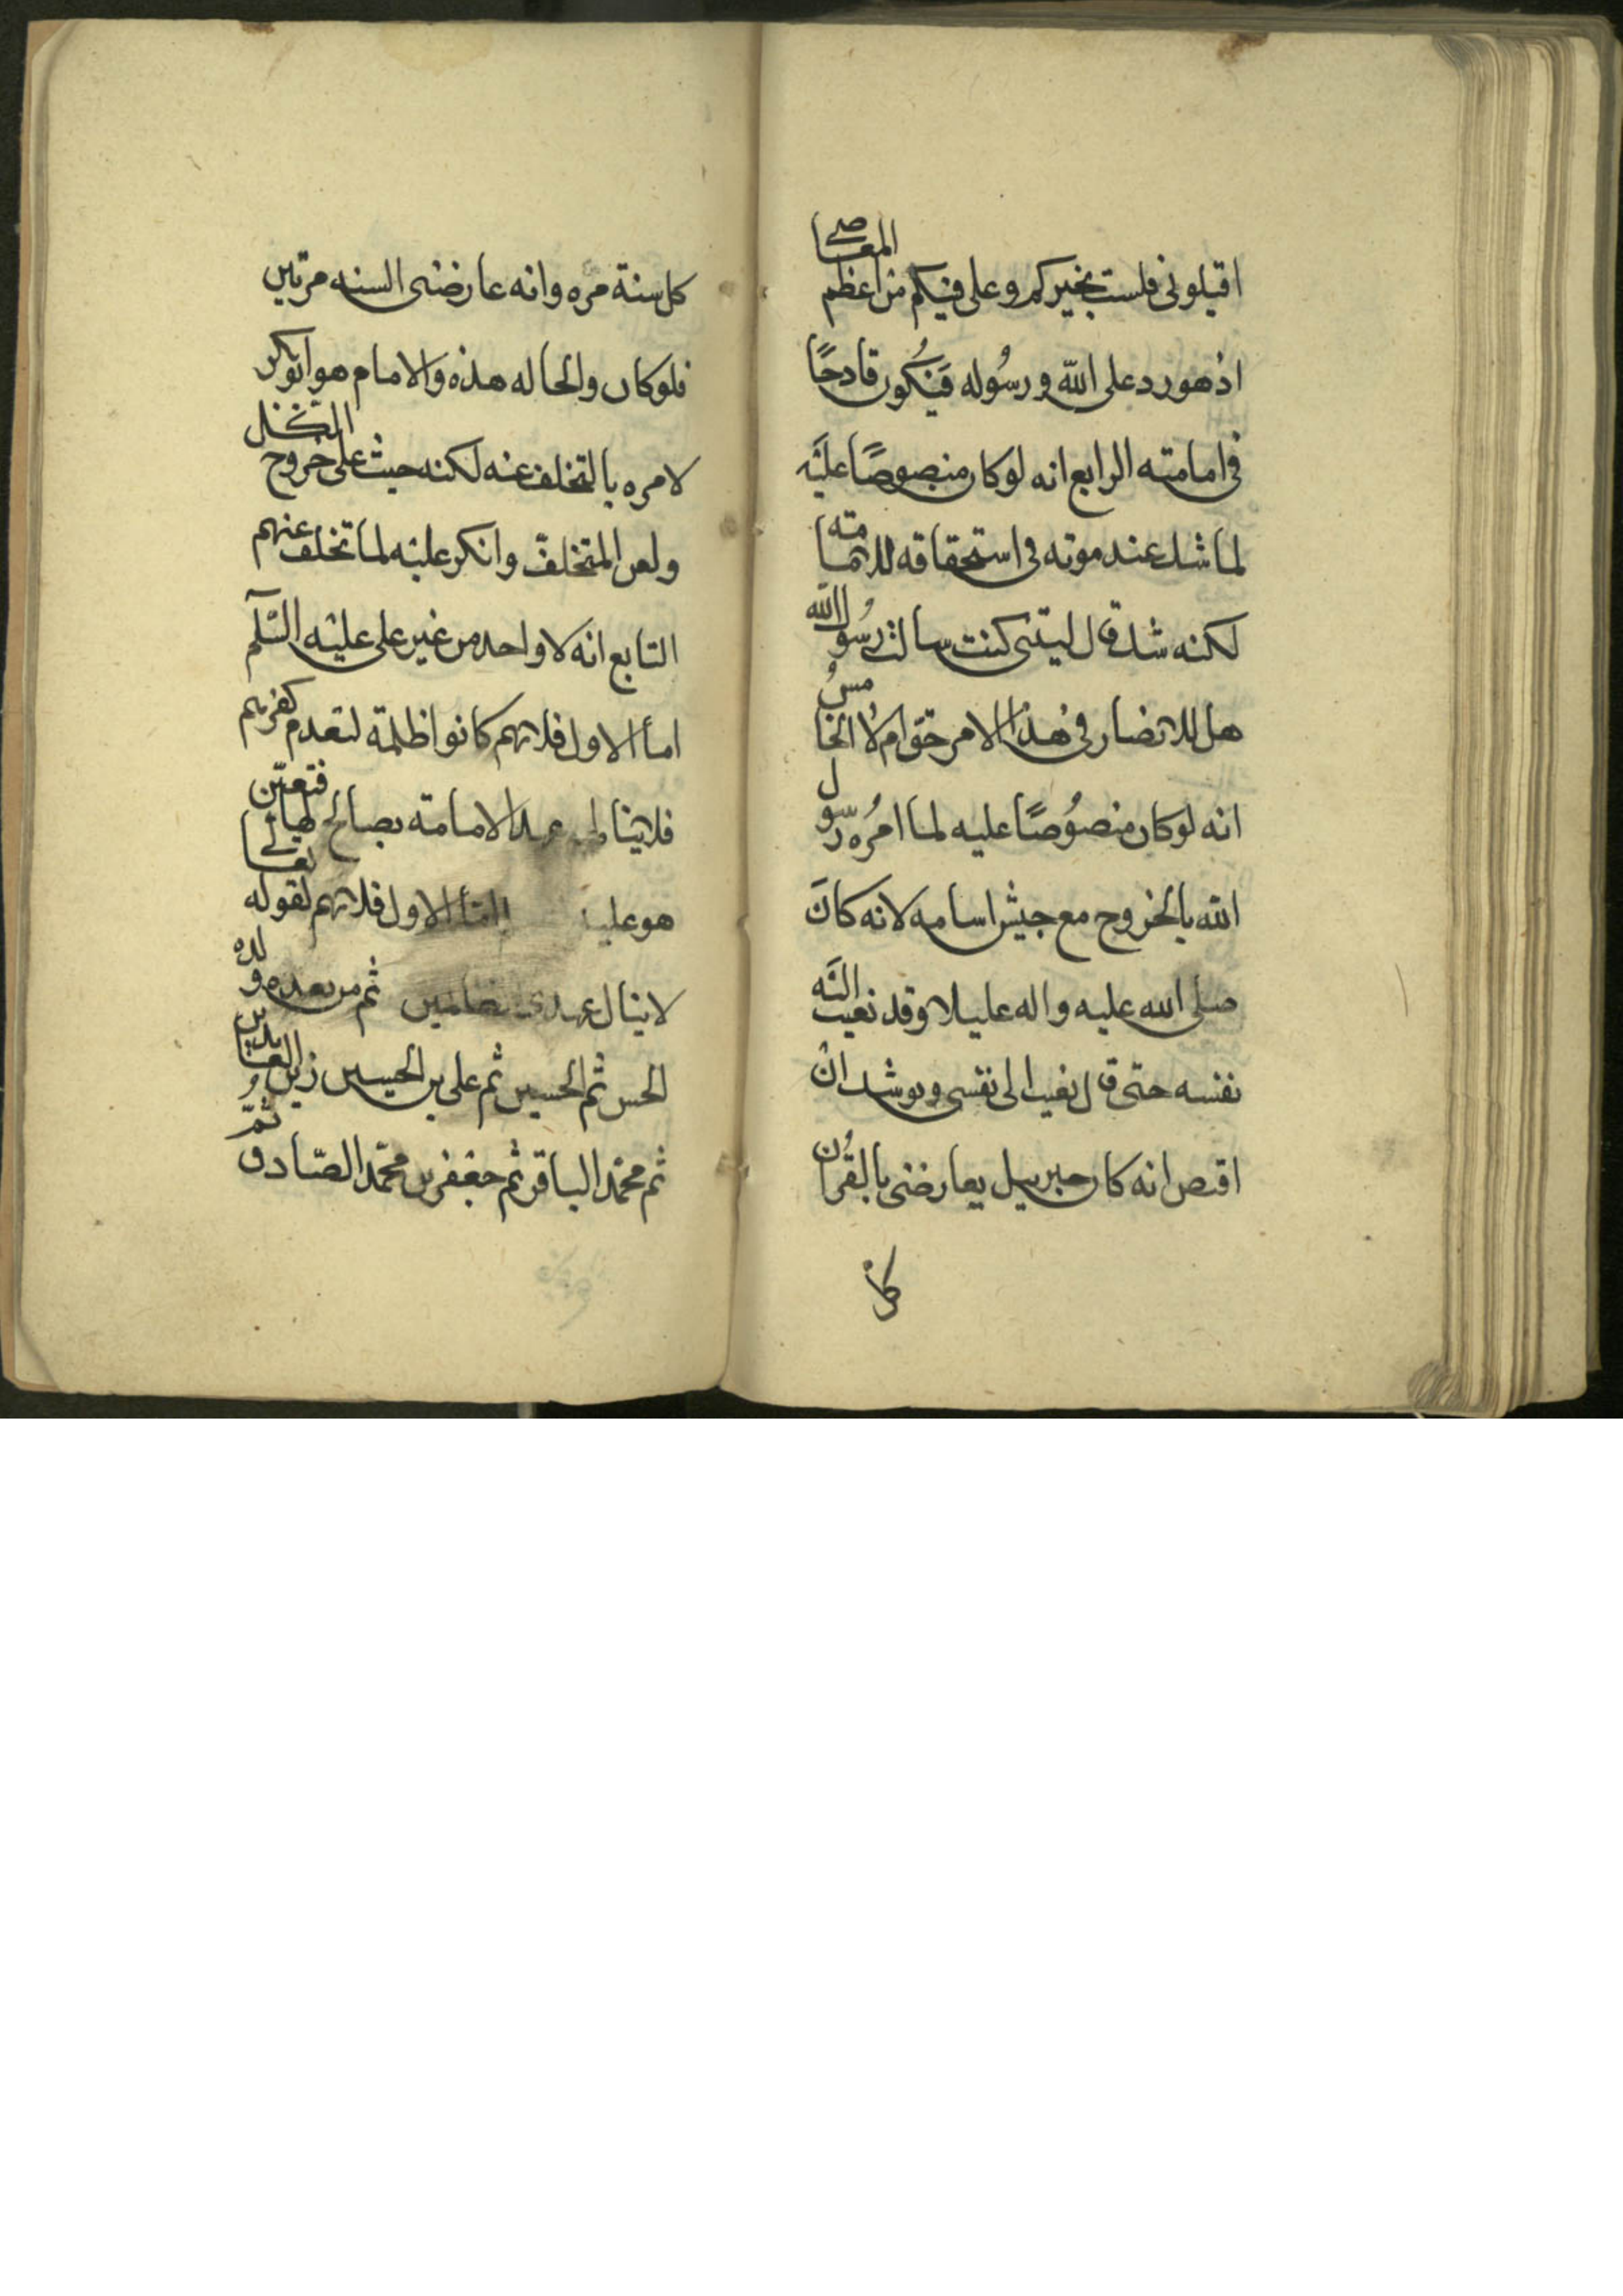 اقيلوني فلست بخيركم وعلى فيكم من اعظم المعاصي
اذ هو رد على الله ورسُوله فيَكُون قادحًا
في امامته الرابع انه لو كان منصوصًا عليَه
لما شك عند موته في استحقاقه للامامته
لكنه شك قال ليتنى كنت سالت رسُول الله
هل للانصار في هذا الامر حق ام لا الخامسُ
انه لو كان منصُوصًا عليه لما امُره رسّول
الله بالخروج مع جيش اسامه لانه كانَ
صلى الله عليه واله عليلا وقد نعيت اليَه
نفسه حتى قال نعيت الى نفسى ويوشك انْ
اقبض انه كان جبرييل يعارضنى بالقُران
كل
كل سنة مره وانه عارضنى السنه مرتين
فلو كان والحاله هذه والامام هو ابوبكر
لامره بالتخلف عنه لكنه حيث على خروج الكل
ولعن المتخلف وانكر عليه لما تخلف عنهم
التابع انه لا واحد من غير على عليه السّلم
اما الاول فلانهم كانوا ظلمة لتقدم كفرهم
فلا ينالهم عهد الامامة بصالح لها فتعيّن
هو عليه اما الاول فلانهم لقوله تعالى
لا ينال عهدى الظالمين ثم من بعده ولده
الحسن ثم الحسين ثم على بن الحسين زين العابدين
ثم محمّد الباقر ثم جعفر بن محمّد الصّادق ثمّ